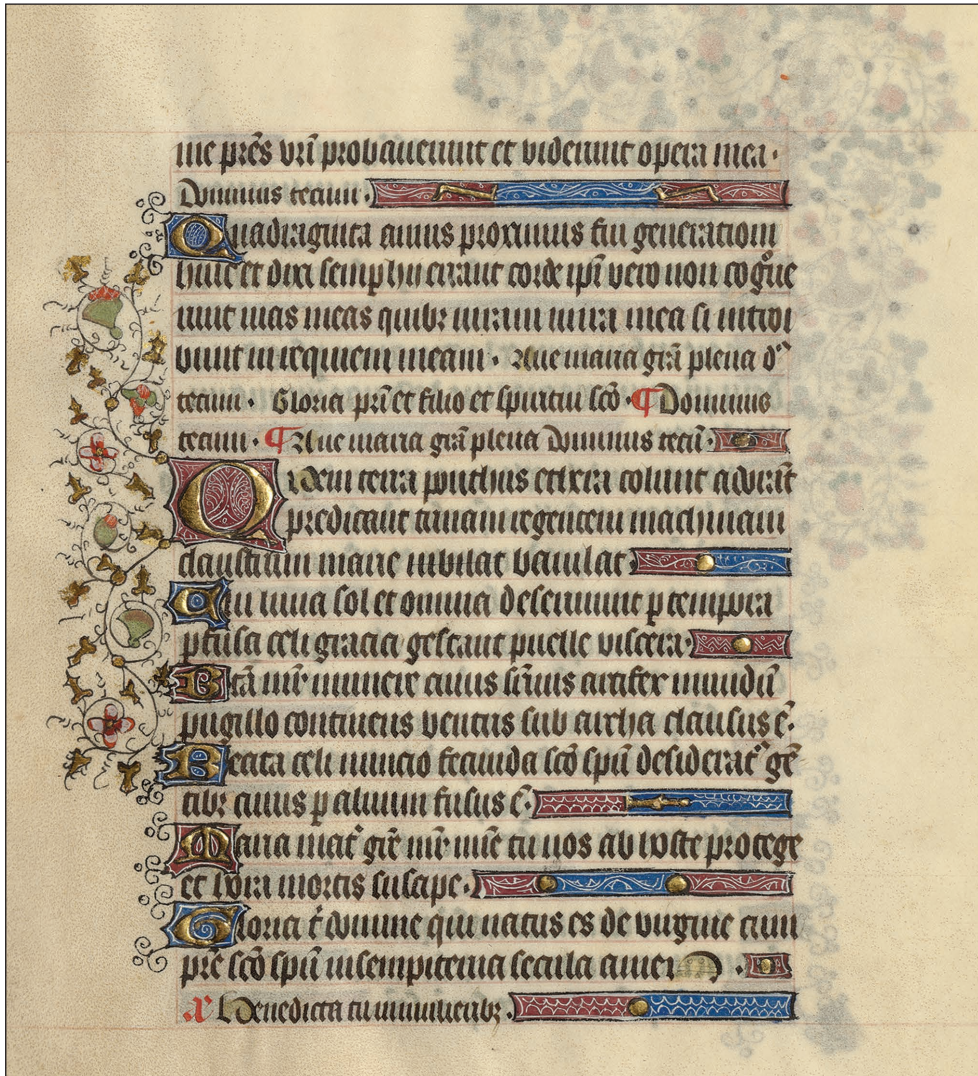 me pr̄es vr̄i probauerunt et viderunt opera mea ·
Dominus tecum ·
Quadraginta annis proximus fui generationi
huic et dixi semp hii errant corde ip̄i vero non cog̊ue
runt uias meas quibꝫ iuraui in ira mea si introi
bunt in requiem meam · Aue maria grā plena dn̄s
tecum · Gloria pr̄i et filio et spiritui sc̄o · ¶ Dominus
tecum · ¶ Aue maria grā plena Dominus tecū ·
Quem terra ponthus ethera colunt adorāt
predicant trinam regentem machinam
claustrum marie iubilat baiulat
Cui luna sol et omnia deseruiunt p tempora
pfusa celi gracia gestant puelle viscera ·
Btā mr̄ munere cuius supnus artifex mundū
pugillo continens ventris sub archa clausus ē ·
Beata celi nuncio fecunda sc̄o spū desideratꝰ gē
tibꝫ cuius p aluum fusus ē ·
Maria mat̄ gr̄e mr̄ mīe tu nos ab hoste protege
et hora mortis suscipe ·
Gloria t̄ domine qui natus es de virgine cum
pr̄e sc̄o spū in sempiterna secula amen ·
Benedicta tu in mulieribꝫ ·